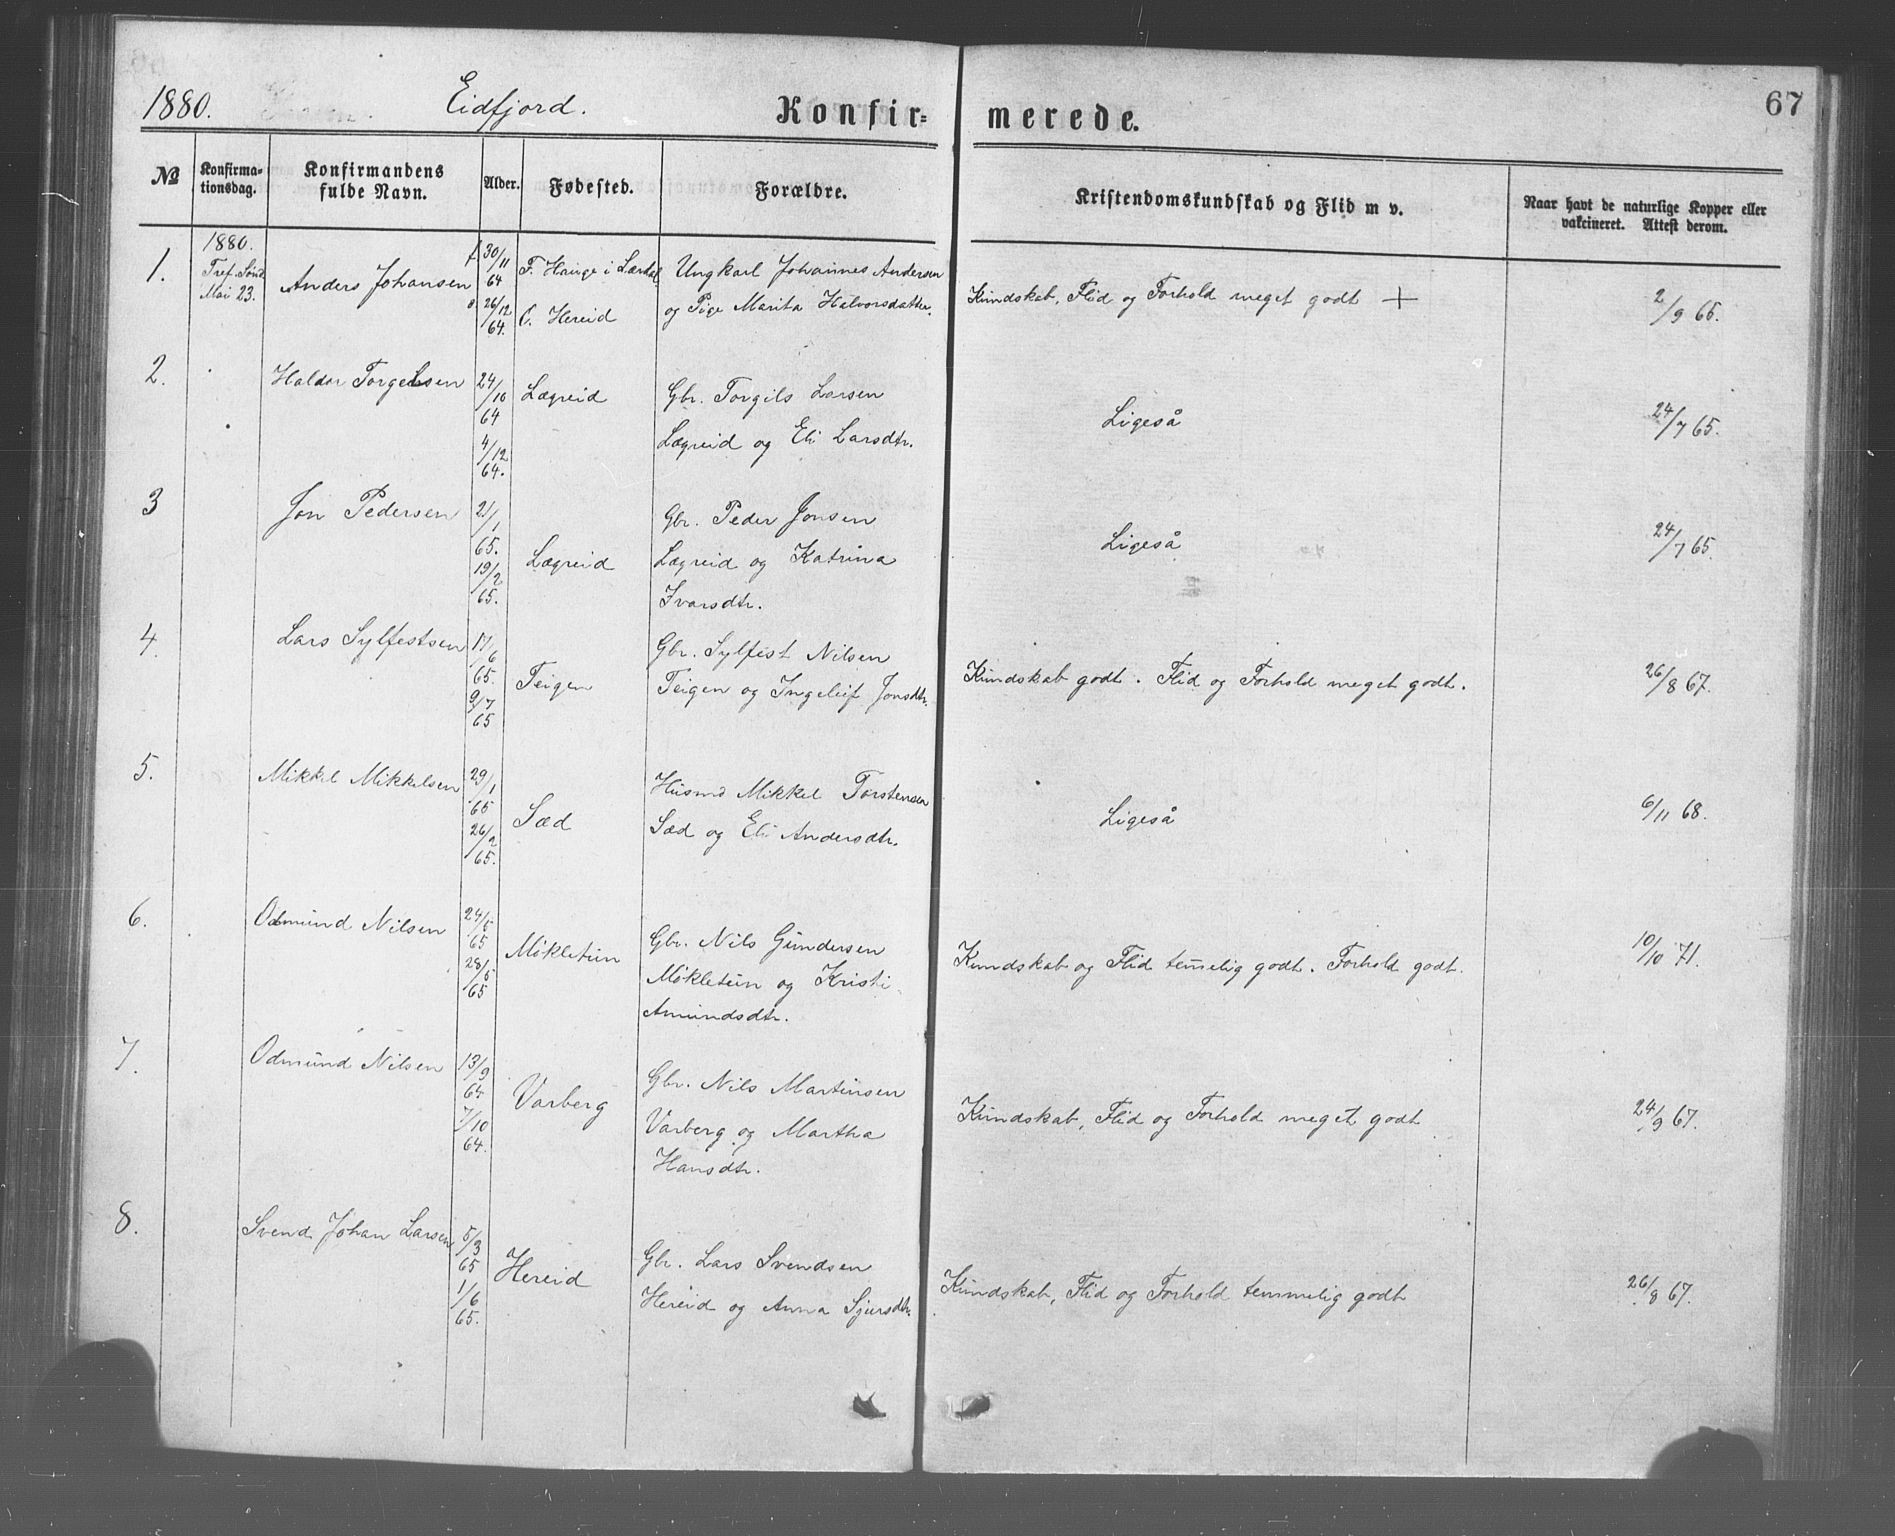 1880. Eidfjord. Konfir= merede. 67
№ Konfirma-tionsdag. Konfirmandens fulde Navn. Alder. Fødested. Forældre. Kristendomskundskab og Flid m v. Naar havt de naturlige Kopper eller vakcineret. Attest derom.
1. 1880. Tref. Sønd. Mai 23. Anders Johansen f 30/11 64 26/12 64. F. Hauge i Lærdal O. Hereid Ungkarl Johannes Andersen og Pige Marita Halvorsdatter. Kundskab, Flid og Forhold meget godt + 2/9 65.
2. Haldor Torgelsen 24/10 64 4/12 64. Lægreid Gbr. Torgils Larsen Lægreid og Eli Larsdtr. Ligeså 24/7 65.
3 Jon Pedersen 21/1 65. 19/2 65. Lægreid Gbr. Peder Jonsen Lægreid og Katrina Ivarsdtr. Ligeså 24/7 65.
4. Lars Sylfestsen 17/6 65. 9/7 65 Teigen Gbr. Sylfest Nilsen Teigen og Ingeleif Jonsdtr. Kundskab godt. Flid og Forhold meget godt. 26/8 67.
5. Mikkel Mikkelsen 29/1 65 26/2 65. Sæd Husmd Mikkel Torstensen Sæd og Eli Andersdtr. Ligeså 6/11 68.
6. Odmund Nilsen 24/5 65 28/5 65 Møkletun Gbr. Nils Gundersen Møkletun og Kristi Amundsdtr. Kundskab og Flid temelig godt. Forhold godt. 10/10 71.
7. Odmund Nilsen 13/9 64 7/10 64. Varberg Gbr. Nils Martinsen Varberg og Martha Hansdtr. Kundskab, Flid og Forhold meget godt 24/9 67.
8. Svend Johan Larsen 5/3 65 1/6 65. Hereid Gbr. Lars Svendsen Hereid og Anna Sjursdtr. Kundskab, Flid og Forhold temmelig godt 26/8 67.